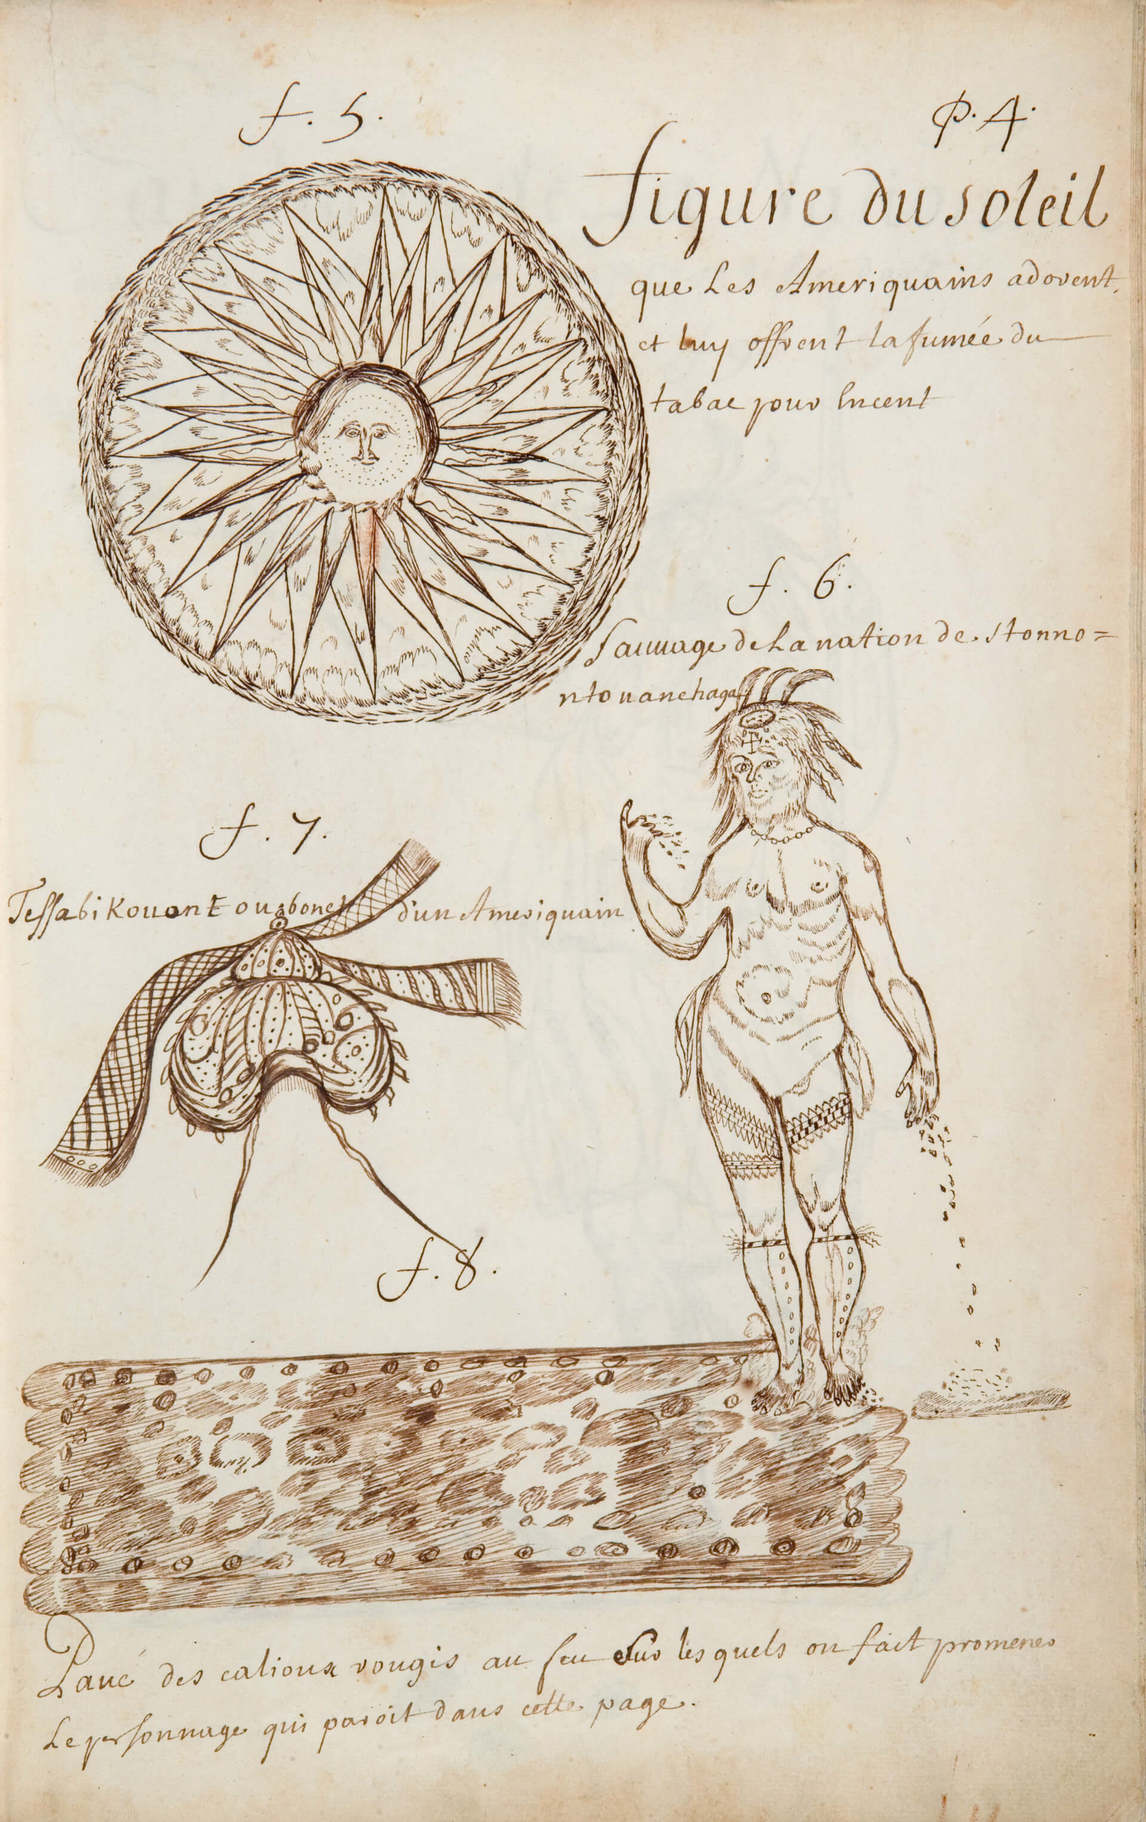 f. 5.
P. 4.
figure du soleil
que Les Ameriquains adorent,
et luy offrent la fumée du
tabac pour Encent
f. 6.
Sauuage de La nation de stonno=
ntouanchaga
f. 7.
Tessabikouent ou bonet d'un Ameriquain
f. 8.
Paué des calioux rougis au feu sur lesquels on fait promener
Le personnage qui paroit dans cette page.